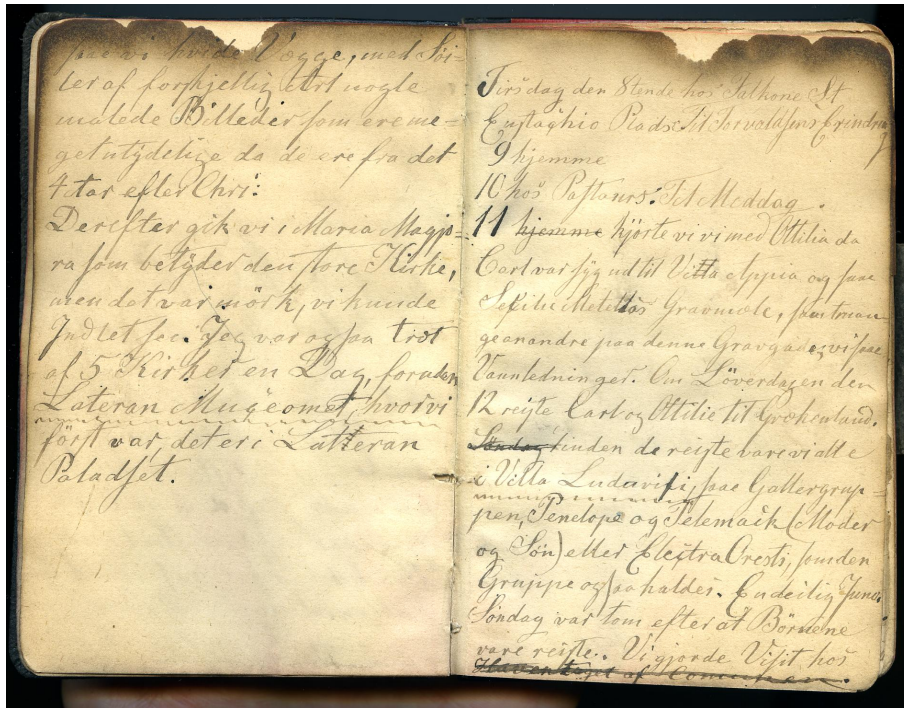 paa vi hvide Vægge, med Söi-
ler af forskjellig Art nogle
malede Billeder som ere me-
get utydelige da de ere fra det
4de Aar efter Chri:
Derefter gik vi i Maria Magjo-
ra som betyder den store Kirke,
men det var mörk, vi kunde
Indtet see. Jeg var ogsaa træt
af 5 Kirker en Dag, foruden
Lateran Museomet, hvor vi
först var, det er i Latteran
Paladset.
Tirsdag den 8tende hos Salkone St
Eustaghio Plads. Til Torvaldsens Erindring
9 hjemme
10 hos Pastaurs. Til Meddag.
11 hjemme hjörte vi vi med Ottilia da
Carl var syg ud til Vitta Appia og saae
Gravmæle, som
geanandre paa denne Gravgade, vi saae
Vannledninger. Om Löverdagen den
12 reiste Carl og Ottilie til Grækenland.
Söndag inden de reiste vare vi alle
i Villa Ludovisi, saae Gallergrup-
pen, Penelope og Telemack (Moder
og Sön) eller Electra Oresti, som den
Gruppe ogsaa kaldes. En deilig Juni.
Söndag var tom efter at Börnene
vare reiste.. Vi gjorde Visit hos